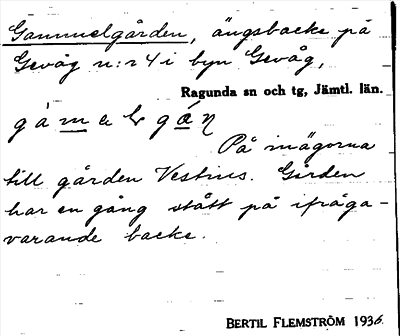 Gammelgården, ängsbacke på
Gevåg n:r 4 i byn Gevåg,
Ragunda sn och tg, Jämtl. län.
På inägorna
till gården Vestins. Gården
har en gång stått på ifråga-
varande backe.
BERTIL FLEMSTRÖM 1936.